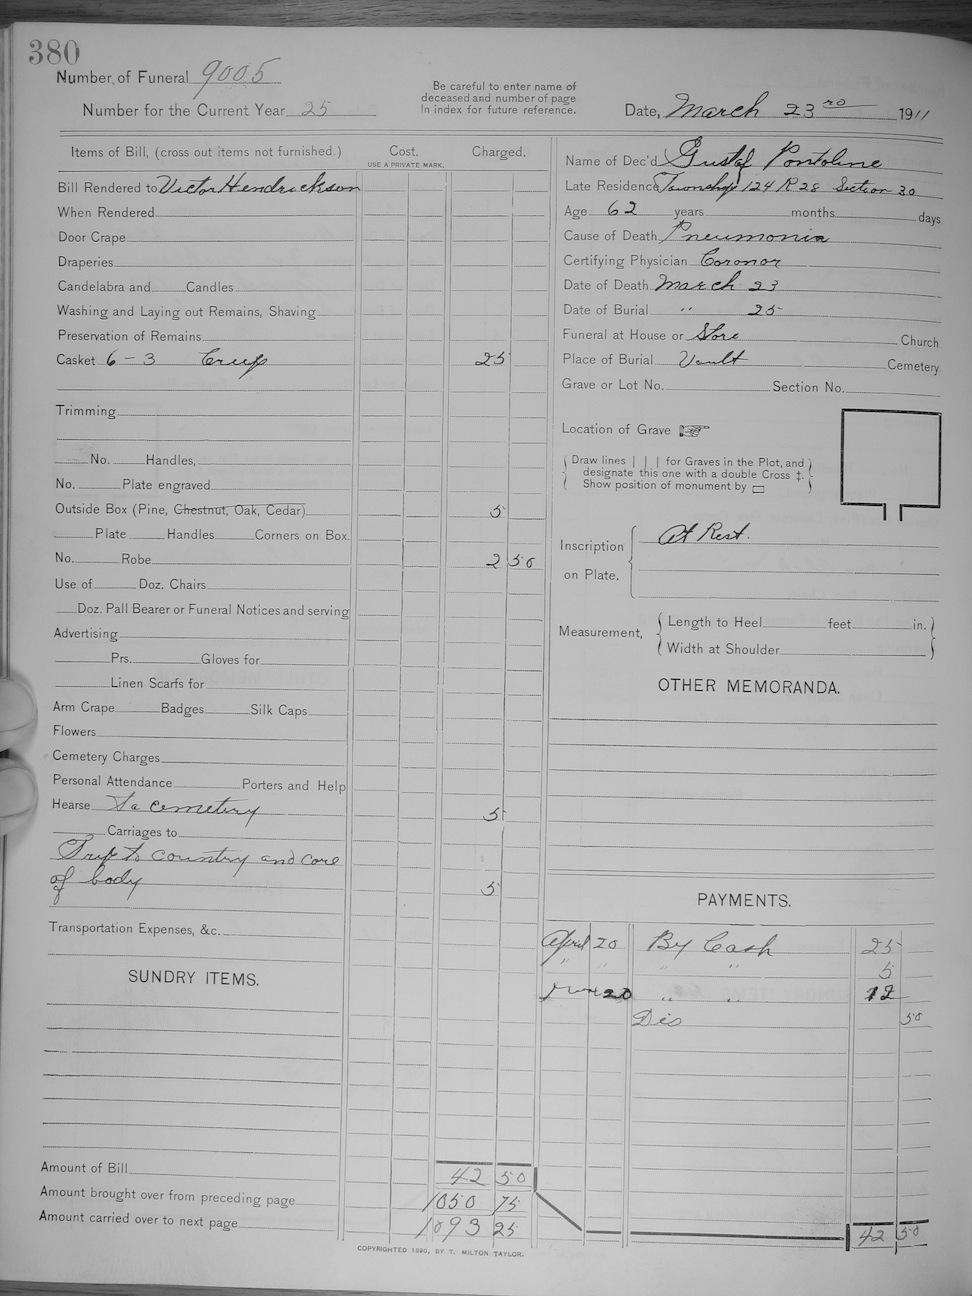 380
Number of Funeral 9005
Number for the Current Year 25
Be careful to enter name of
deceased and number of page
In index for future reference.
Date, March 23rd 1911
Items of Bill, (cross out items not furnished.) Cost. Charged.
USE A PRIVATE MARK.
Bill Rendered to Victor Hendrickson
When Rendered
Door Crape
Draperies
Candelabra and Candles
Washing and Laying out Remains, Shaving
Preservation of Remains
Casket 6-3 Crup 25
Trimming
No. Handles,
No. Plate engraved
Outside Box (Pine, Chestnut, Oak, Cedar) 5
Plate Handles Corners on Box.
No. Robe 2 50
Use of Doz. Chairs
Doz. Pall Bearer or Funeral Notices and serving
Advertising
Prs. Gloves for
Linen Scarfs for
Arm Crape Badges Silk Caps
Flowers
Cemetery Charges
Personal Attendance Porters and Help
Hearse To cemetery 5
Carriages to
Trip to country and care
of body 5
Transportation Expenses, &c.
SUNDRY ITEMS.
Amount of Bill 42 50
Amount brought over from preceding page 1050 75
Amount carried over to next page 1093 25
Name of Dec'd Gustaf Pontoline
Late Residence Township 124 R 28 Section 30
Age 62 years months days
Cause of Death Pneumonia
Certifying Physician Coronor
Date of Death March 23
Date of Burial " 25
Funeral at House or Store Church
Place of Burial Vault Cemetery
Grave or Lot No. Section No.
Location of Grave
Draw lines | | | for Graves in the Plot, and
designate this one with a double Cross ‡.
Show position of monument by
Inscription At Rest.
on Plate.
Measurement, Length to Heel feet in.
Width at Shoulder
OTHER MEMORANDA.
PAYMENTS.
April 20 By Cash 25
" " " " 5
June 20 " " 12
Dis 50
42 50
COPYRIGHTED 1890, BY T. MILTON TAYLOR.